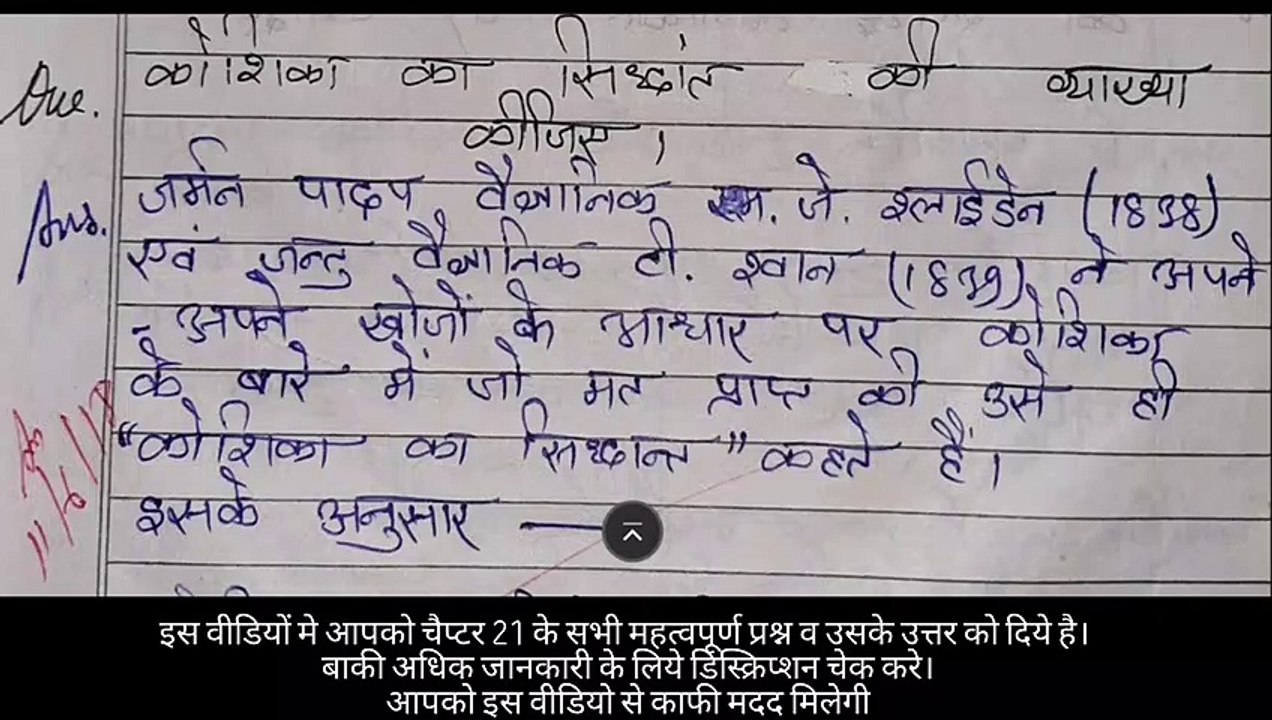 Que. कोशिका का सिध्दांत की व्याख्या
कीजिए।
Ans. जर्मन पादप वैज्ञानिक एम. जे. श्लाईडेन (1838)
एवं जन्तु वैज्ञानिक टी. श्वान (1839) ने अपने
- अपने खोजों के आधार पर कोशिका
के बारे में जो मत प्राप्त की उसे ही
"कोशिका का सिध्दान्त" कहते हैं।
इसके अनुसार —
इस वीडियों मे आपको चैप्टर 21 के सभी महत्वपूर्ण प्रश्न व उसके उत्तर को दिये है।
बाकी अधिक जानकारी के लिये डिस्क्रिप्शन चेक करे।
आपको इस वीडियो से काफी मदद मिलेगी